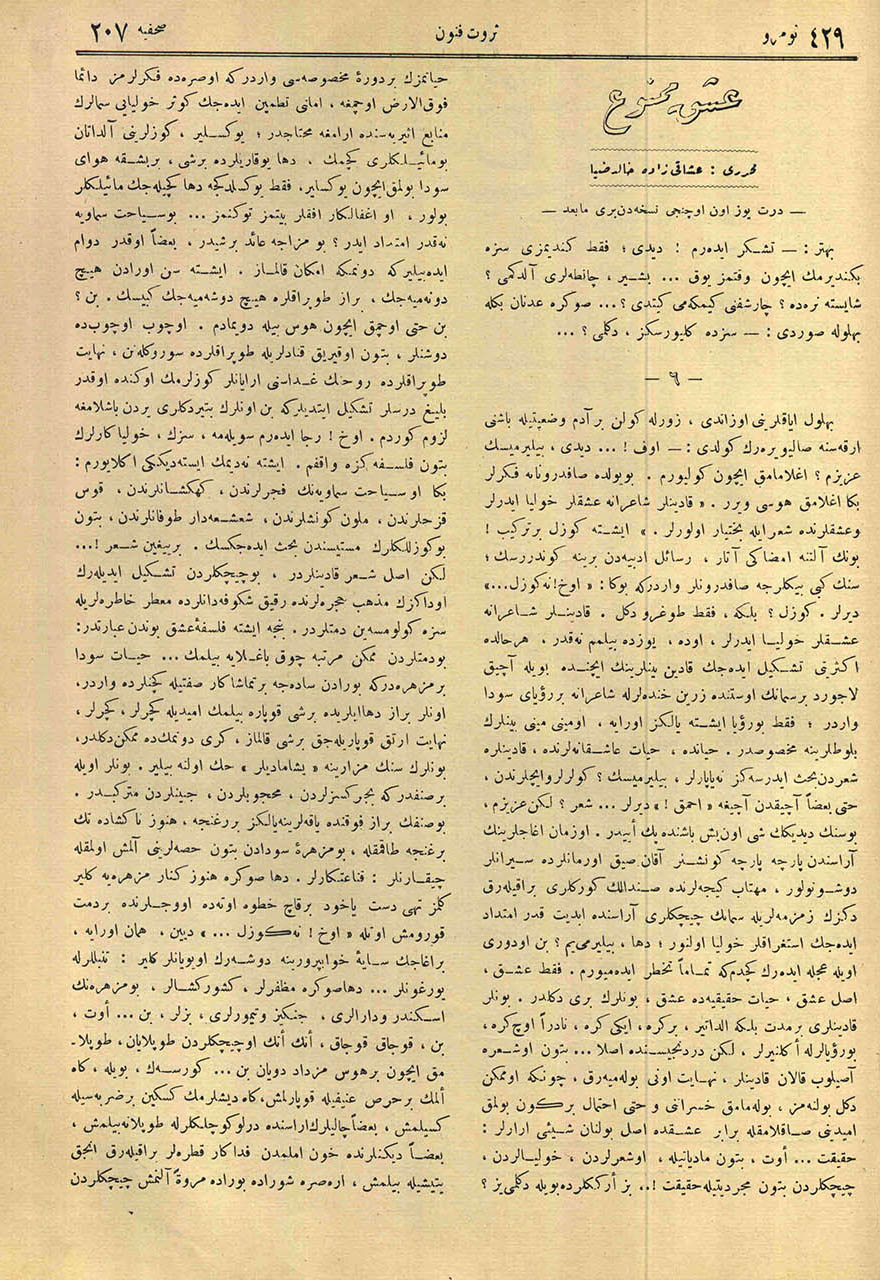 نومرو ٤٢٩
ثروت فنون
صحيفه ٢٠٧
عشق ممنوع
محررى : عشاقى زاده خالد ضيا
— درت يوز اون اوچنجى نسخه دن برى مابعد —
بهتر : — تشكر ايدەرم ! ديدى ؛ فقط كنديمزى سزه
بكنديرمك ايچون وقتمز يوق ... بشير ، چانطه لرى آلدكمى ؟
شايسته نره ده ؟ چارشفنى كيمكه مى كيتدى ؟ ... صوكره عدنان بكله
بهلوله صوردى : — سزده كليورسكز ، دكلى ؟ ...
— ٦ —
بهلول اياقلرينى اوزاندى ، زورله كولن بر آدم وضعيتيله باشنى
ارقه سنه صاليويره رك كولدى : — اوف ! ... ديدى ، بيليرميسك
عزيزم ؟ اغلامامق ايچون كوليورم . بويولده صافدرونانه فكرلر
بكا اغلامق هوسى ويرر . « قادينلر شاعرانه عشقلر خوليا ايدرلر
وعشقلرنده شعر ايله بختيار اولورلر . » ايشته كوزل بر تركيب !
بونك آلتنه امضاكى آت ، رسائل ادبيه دن برينه كوندررسك ؛
سنك كبى بيكلرجه صافدرونلر واردركه بوكا : « اوخ ! نه كوزل ... »
ديرلر . كوزل ؟ بلكه ، فقط طوغرو دكل . قادينلر شاعرانه
عشقلر خوليا ايدرلر ، اوده ، يوزده بيلمم نه قدر ، هر حالده
اكثرنى تشكيل ايده جك قادين بينلرينك ايچنده بويله آچيق
لاجورد بر سمانك اوستنده زرين خنده لرله شاعرانه بر رؤياى سودا
واردر ؛ فقط بو رؤيا ايشته يالكز اورايه ، او مينى مينى بينلرك
بلوطلرينه مخصوصدر . حياتده ، حيات عاشقانه لرنده ، قادينلره
شعردن بحث ايدرسه كز نه ياپارلر ، بيليرميسك ؟ كولرلر و ايچلرندن ،
حتى بعضاً آچيقدن آچيغه « احمق ! » ديرلر ... شعر ؟ لكن عزيزم ،
بو سنك ديديكك شى اون بش ياشنده پك أييدر . اوزمان اغاجلرينك
آراسندن پارچه پارچه كونشلر آقان صيق اورمانلرده سيرانلر
دوشونولور ، مهتاب كيجه لرنده صندالك كوركلرى براقيله رق
دكزك زمزمه لريله سمانك چيچكلرى آراسنده ابديت قدر امتداد
ايده جك استغراقلر خوليا اولنور ؛ دها ، بيليرمى يم ؟ بن اودورى
اويله عجله ايده رك كچدم كه تماماً تخطر ايده ميورم . فقط عشق ،
اصل عشق ، حيات حقيقيه ده عشق ، بونلرك برى دكلدر . بونلر
قادينلرى بر مدت بلكه الداتير ، بر كره ، ايكى كره ، نادراً اوچ كره ،
بو رؤيالرله أكلنيرلر ، لكن دردنجيسنده اصلا ... بتون او شعره
آصيلوب قالان قادينلر ، نهايت اونى بوله ميه رق ، چونكه او ممكن
دكل بولنه مز ، بوله مامق خسرانى و حتى احتمال بر كون بولمق
اميدينى صاقلامقله برابر عشقده اصل بولنان شيئى ارارلر :
حقيقت ... أوت ، بتون مادياتيله ، او شعرلردن ، خوليالردن ،
چيچكلردن بتون مجرديتيله حقيقت ! .. بز أرككلرده بويله دكلمى يز ؟
حياتمزك بر دورهٔ مخصوصه سى واردركه اوصره ده فكرلرمز دائما
فوق الارض اوچمغه ، امانى تطمين ايده جك كوثر خوليايى سمالرك
منابع اثيريه سنده ارامغه محتاجدر ؛ يوكسلير ، كوزلرينى آلداتان
بو مائيلكلرى كچمك ، دها يوقاريلرده بر شى ، بر بشقه هواى
سودا بولمق ايچون يوكسلير . فقط يوكسلدكجه دها كچيله جك مائيلكلر
بولور ، او اغفالكار افقلر بيتمز توكنمز ... بو سياحت سماويه
نه قدر امتداد ايدر ؟ بو مزاجه عائد بر شيدر ، بعضاً اوقدر دوام
ايده بيليركه دونمكه امكان قالماز . ايشته سن اورادن هيچ
دونه ميه جك ، براز طوپراقلره هيچ دوشه ميه جك كبيسك . بن ؟
بن حتى اوچمق ايچون هوس بيله دويمادم . اوچوب اوچوب ده
دوشنلر ، بتون او قيريق قنادلريله طوپراقلرده سوروكلنن ، نهايت
طوپراقلرده روحنك غداسنى ارايانلر كوزلرمك اوكنده اوقدر
بليغ درسلر تشكيل ايتديلركه بن اونلرك بتيردكلرى يردن باشلامغه
لزوم كوردم . اوخ ! رجا ايدەرم سويله مه ، سزك ، خولياكارلرك
بتون فلسفه كزه واقفم . ايشته نه ديمك ايسته ديككى اكلايورم :
بكا او سياحت سماويه نك فجرلرندن ، كهكشانلرندن ، قوس
قزحلرندن ، ملون كونشلرندن ، شعشعه دار طوفانلرندن ، بتون
بو كوزللكلرك مستيسندن بحث ايده جكسك . بر ييغين شعر ! ...
لكن اصل شعر قادينلردر ، بو چيچكلردن تشكيل ايديله رك
اوداكزك مذهب حجره لرنده رقيق شكوفه دانلرده معطر خاطره لريله
سزه كولومسه ين دمتلردر . بنجه ايشته فلسفهٔ عشق بوندن عبارتدر :
بو دمتلردن ممكن مرتبه چوق باغلايه بيلمك ... حيات سودا
بر مزهره دركه بورادن ساده جه بر تماشاكار صفتيله كچنلرده واردر ،
اونلر براز دها ايلريده بر شى قوپاره بيلمك اميديله كچرلر ، كچرلر ،
نهايت ارتق قوپاريله جق بر شى قالماز ، كرى دونمك ده ممكن دكلدر ،
بونلرك سنك مزارينه « يشاماديلر » حك اولنه بيلير . بونلر اويله
بر صنفدركه بجركسزلردن ، محجوبلردن ، جبينلردن متركبدر .
بو صنفك براز فوقنده ياقه لرينه يالكز بر غنجه ، هنوز ناكشاده تك
بر غنجه طاقمقله ، بو مزهرهٔ سودادن بتون حصه لرينى آلمش اولمقله
چيقارنلر : قناعتكارلر . دها صوكره هنوز كنار مزهره يه كلير
كلمز تهى دست ياخود بر قاچ خطوه اوته ده اووجلرنده بر دمت
قورومش اوتله « اوخ ! نه كوزل ... » ديين ، همان اورايه ،
بر اغاجك سايهٔ خواپرورينه دوشه رك اويويانلر كلير : تنبللرله
يورغونلر ... دها صوكره مظفرلر ، كشوركشالر ، بو مزهره نك
اسكندر و دارالرى ، جنكيز و تيمورلرى ، بزلر ، بن ... أوت ،
بن ، قوجاق قوجاق ، أتك أتك او چيچكلردن طوپلايان ، طوپلا-
مق ايچون بر هوس مزداد دويان بن ... كورسه ك ، بويله ، كاه
ألمك بر حرص عنيفيله قوپارلمش ، كاه ديشلرمك كسكين بر ضربه سيله
كسيلمش ، بعضاً چاليلرك اراسنده درلو كوچلكلرله طوپلانه بيلمش ،
بعضاً ديكنلرنده خون املمدن فداكار قطره لر براقيله رق انجق
يتيشيله بيلمش ، اره صره شوراده بوراده مروةً آلنمش چيچكلردن